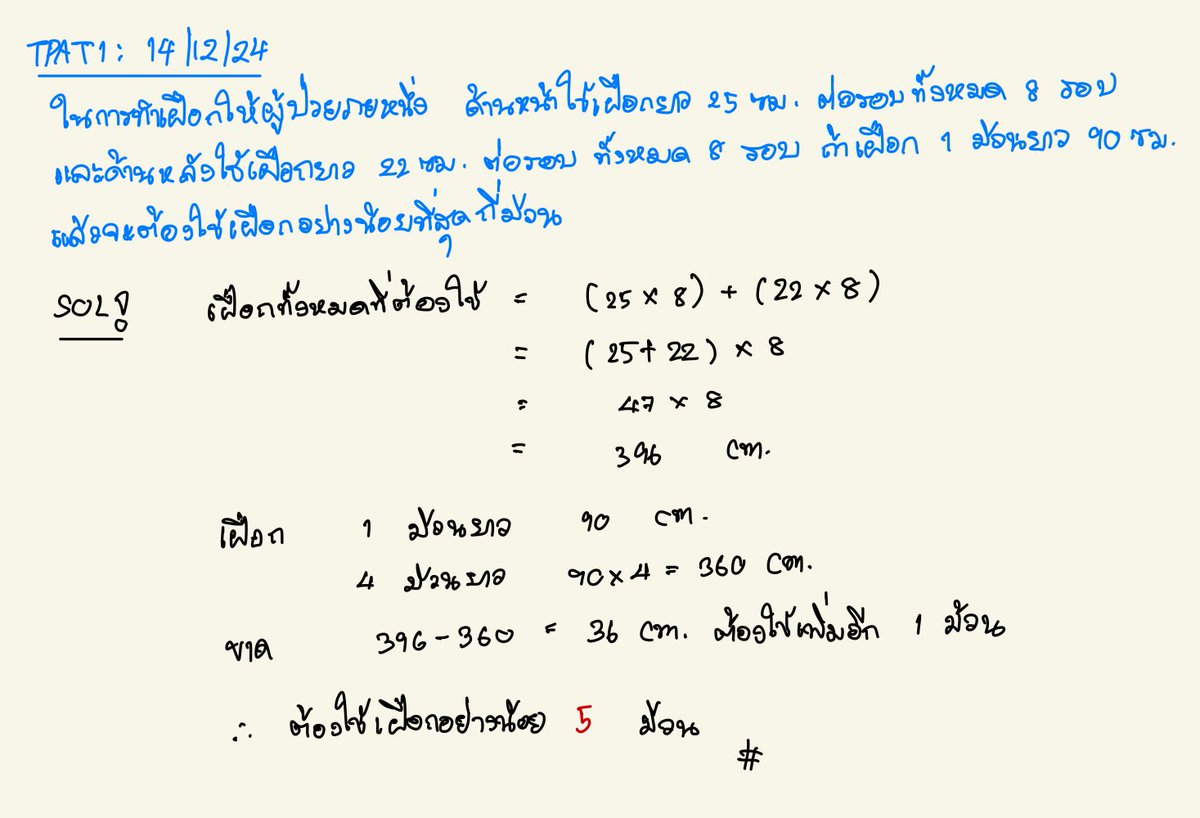 TPAT1: 14/12/24
ในการทำเฝือกให้ผู้ป่วยรายหนึ่ง ด้านหน้าใช้เฝือกยาว 25 ซม. ต่อรอบทั้งหมด 8 รอบ
และด้านหลังใช้เฝือกยาว 22 ซม. ต่อรอบ ทั้งหมด 8 รอบ ถ้าเฝือก 1 ม้วนยาว 90 ซม.
แล้วจะต้องใช้เฝือกอย่างน้อยที่สุดกี่ม้วน
SOL เฝือกทั้งหมดที่ต้องใช้ = (25 × 8) + (22 × 8)
= (25+22) × 8
= 47 × 8
= 396 cm.
เฝือก 1 ม้วนยาว 90 cm.
4 ม้วนยาว 90×4 = 360 cm.
ขาด 396-360 = 36 cm. ต้องใช้เพิ่มอีก 1 ม้วน
∴ ต้องใช้เฝือกอย่างน้อย 5 ม้วน
#